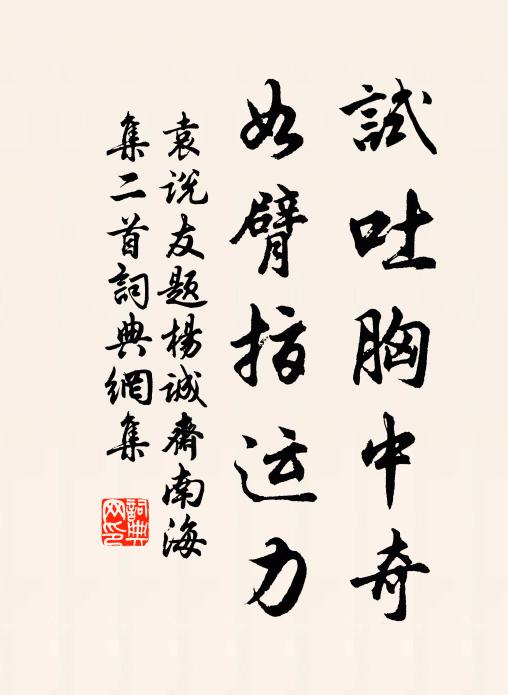 試吐胸中奇
如臂指运力
袁说友题楊诚齋南海
集二首詞典網集
詞典网印